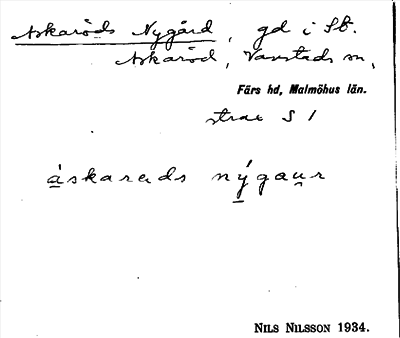 Askaröds Nygård, gd i St.
Askaröd, Vanstads sn,
Färs hd, Malmöhus län.
strax S /
áskarɐds nýgaur
NILS NILSSON 1934.